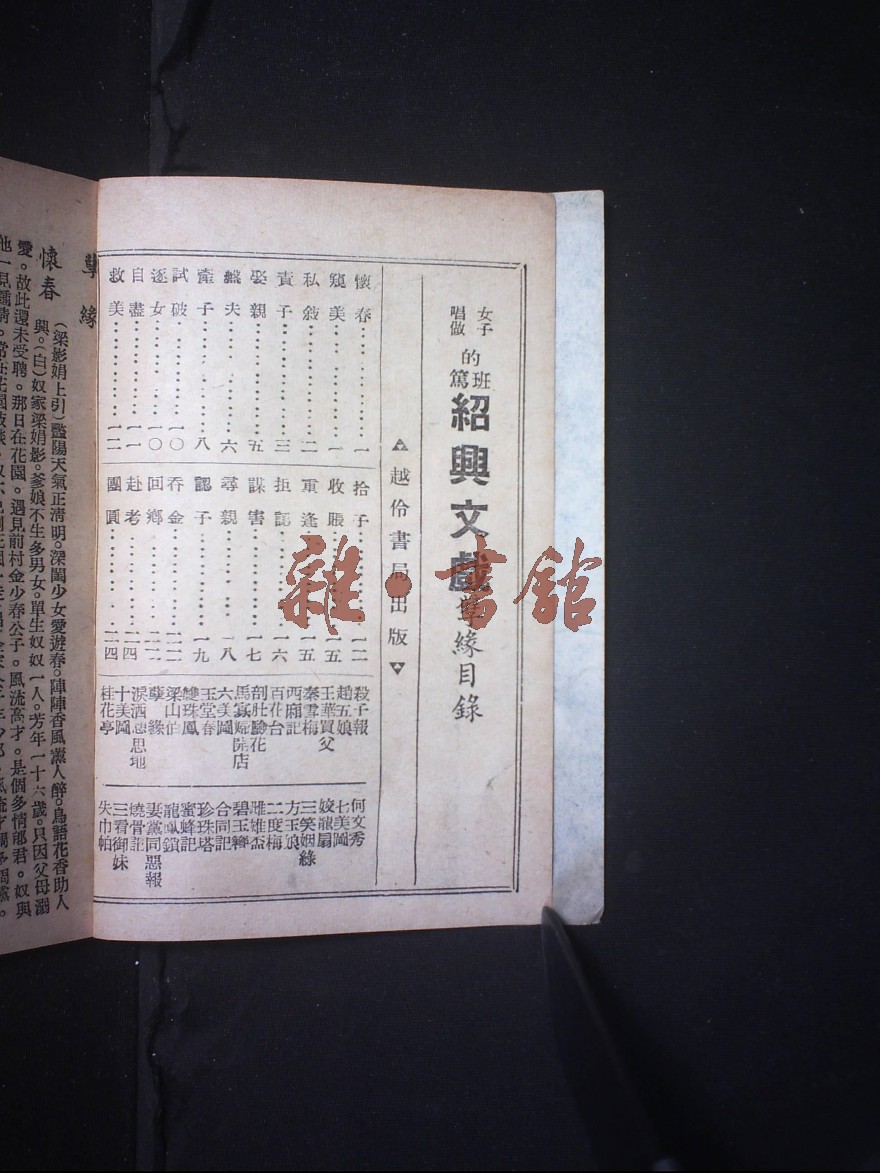 女子
唱做
的篤班
紹興文戲孽緣目錄
越伶書局出版
懷春……一
窺美……一
私敍……二
責子……三
娶親……五
緘夫……六
產子……八
試破……一〇
逐女……一〇
自盡……一一
救美……一二
拾子……一二
收賬……一五
重逢……一五
拒認……一六
謀害……一七
尋親……一八
認子……一九
吞金……二二
回鄉……二二
赴考……二四
團圓……二四
殺子報
趙五娘
王華買父
秦雪梅
西廂記
百花台
剖肚驗花
馬寡婦開店
六美圖
玉堂春
雙珠鳳
梁山伯
孽緣
淚洒相思地
十美圖
桂花亭
何文秀
七美圖
姣龍扇
三笑姻緣
方玉娘
二度梅
雌雄盃
碧玉簪
合同記
珍珠塔
蜜蜂記
龍鳳鎖
妻黨同惡報
燒骨記
三看御妹
失巾帕
孽緣
懷春
(梁影娟上引)豔陽天氣正清明。深閨少女愛遊春。陣陣香風薰人醉。鳥語花香助人
興。(白)奴家梁娟影。爹娘不生多男女。單生奴奴一人。芳年一十六歲。只因父母溺
愛。故此還未受聘。那日在花園。遇見前村金少春公子。風流高才。是個多情郎君。奴與
雜·書館